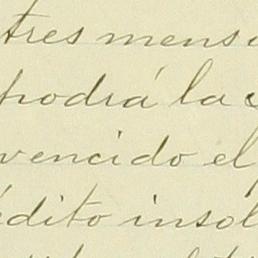 tres mensu
podrá la c
vencido el p
édito insol